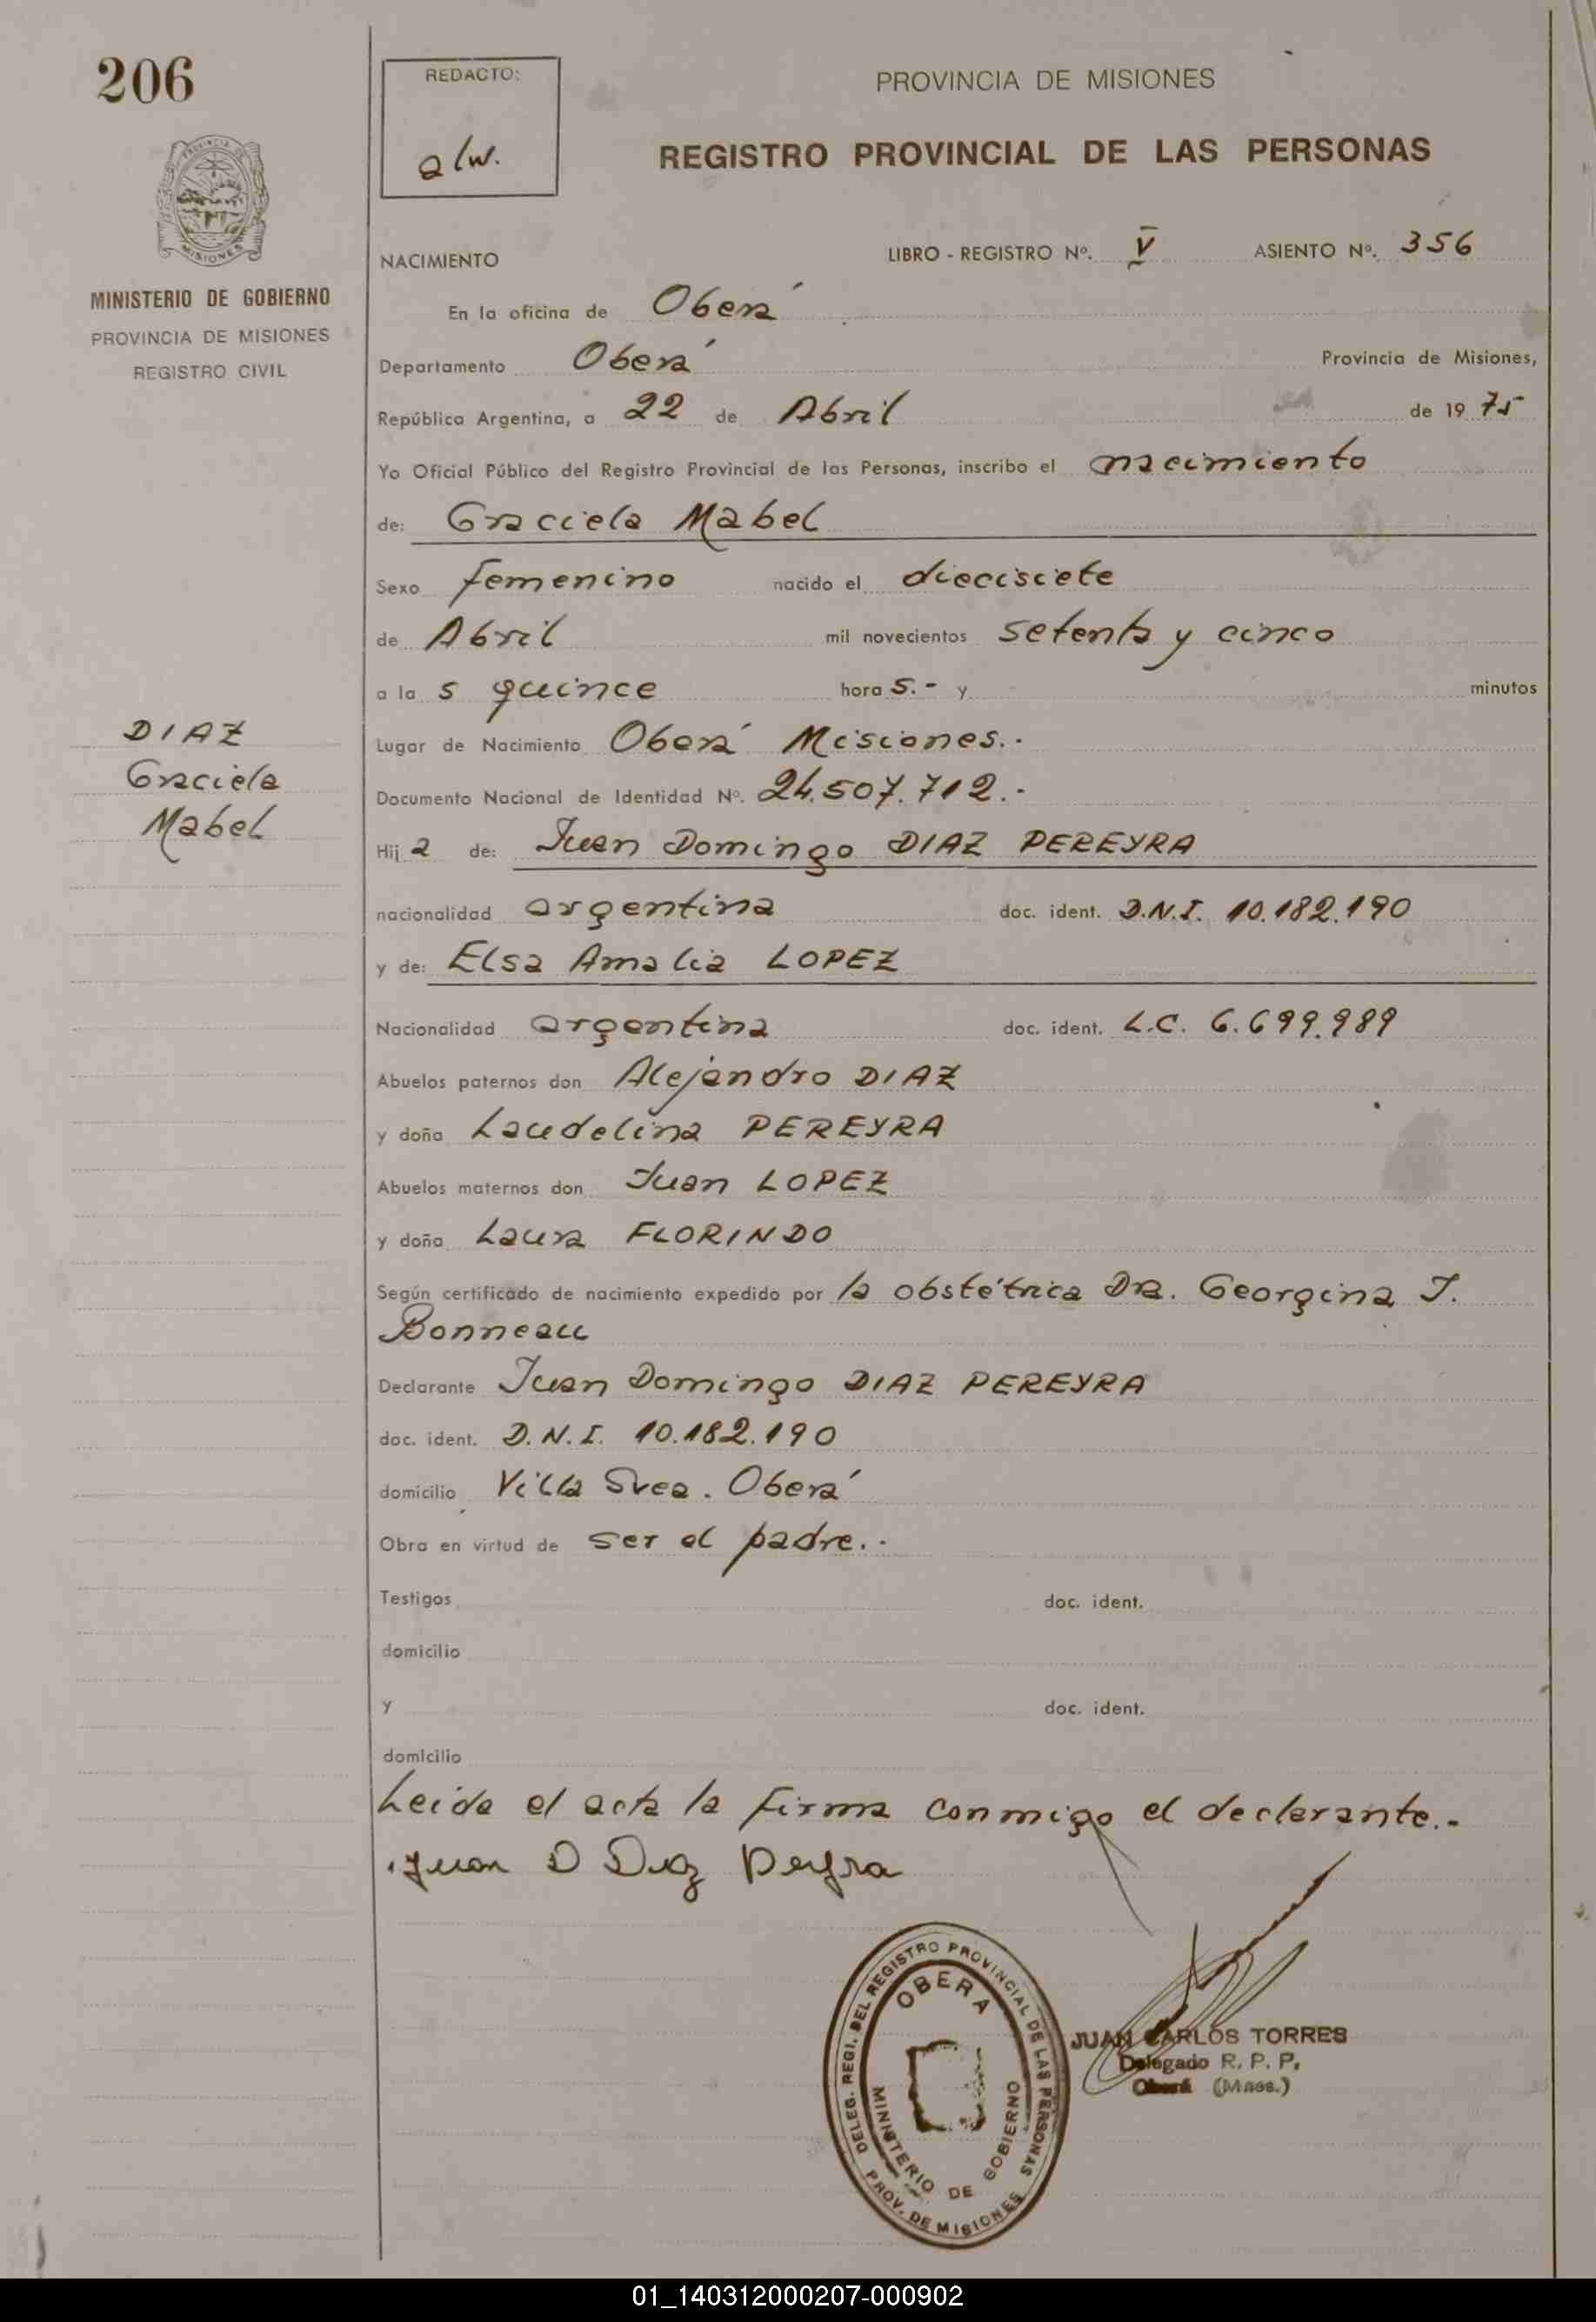 206
REDACTO:
alw.
PROVINCIA DE MISIONES
REGISTRO PROVINCIAL DE LAS PERSONAS
MISIONES
MINISTERIO DE GOBIERNO
PROVINCIA DE MISIONES
REGISTRO CIVIL
NACIMIENTO
LIBRO - REGISTRO Nº. V ASIENTO Nº. 356
En la oficina de Oberá
Departamento Oberá Provincia de Misiones,
República Argentina, a 22 de Abril de 1975
Yo Oficial Público del Registro Provincial de las Personas, inscribo el nacimiento
de: Graciela Mabel
Sexo femenino nacido el diecisiete
de Abril mil novecientos setenta y cinco
a la s quince hora s.- y minutos
DIAZ
Graciela
Mabel
Lugar de Nacimiento Oberá Misiones.-
Documento Nacional de Identidad Nº. 24.507.712.-
Hij a de: Juan Domingo DIAZ PEREYRA
nacionalidad argentina doc. ident. D.N.I. 10.182.190
y de: Elsa Amalia LOPEZ
Nacionalidad argentina doc. ident. L.C. 6.699.989
Abuelos paternos don Alejandro DIAZ
y doña Laudelina PEREYRA
Abuelos maternos don Juan LOPEZ
y doña Laura FLORINDO
Según certificado de nacimiento expedido por la obstétrica Dra. Georgina J.
Bonneau
Declarante Juan Domingo DIAZ PEREYRA
doc. ident. D.N.I. 10.182.190
domicilio Villa Svea. Oberá
Obra en virtud de ser el padre.-
Testigos doc. ident.
domicilio
y doc. ident.
domicilio
Leida el acta la firma conmigo el declarante.-
Juan D Diaz Pereyra
DELEG. REGI. DEL REGISTRO PROVINCIAL DE LAS PERSONAS
PROV. DE MISIONES
OBERA
MINISTERIO DE GOBIERNO
JUAN CARLOS TORRES
Delegado R. P. P.
Oberá (Mnes.)
01_140312000207-000902